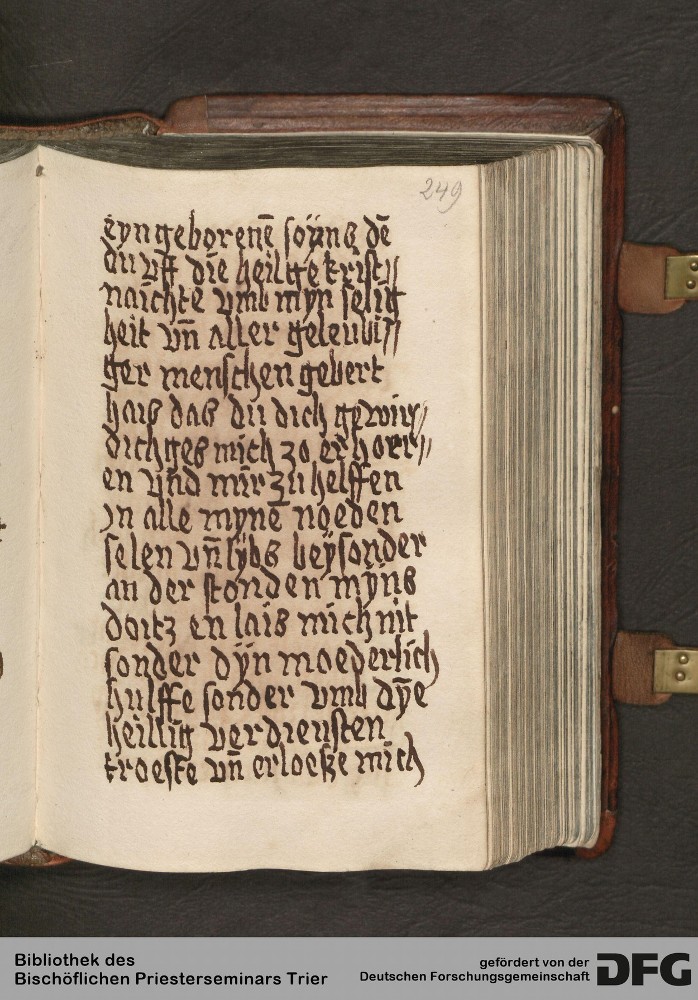 249
eyngeborenē soÿns dē
du vff die heilge krist//
naichte vmb myn selig
heit vn̄ aller geleubi//
ger menschen gebert
hais das du dich gewir//
dichges mich zo erhorr//
en vnd mir zu helffen
jn alle mynē noeden
selen vn̄ lÿbs beÿsonder
an der stonden mÿns
doitz en lais mich nit
sonder dÿn moederlich
hulffe sonder vmb dÿe
heillig verdiensten
troeste vn̄ erloeße mich
Bibliothek des
Bischöflichen Priesterseminars Trier
gefördert von der
Deutschen Forschungsgemeinschaft
DFG